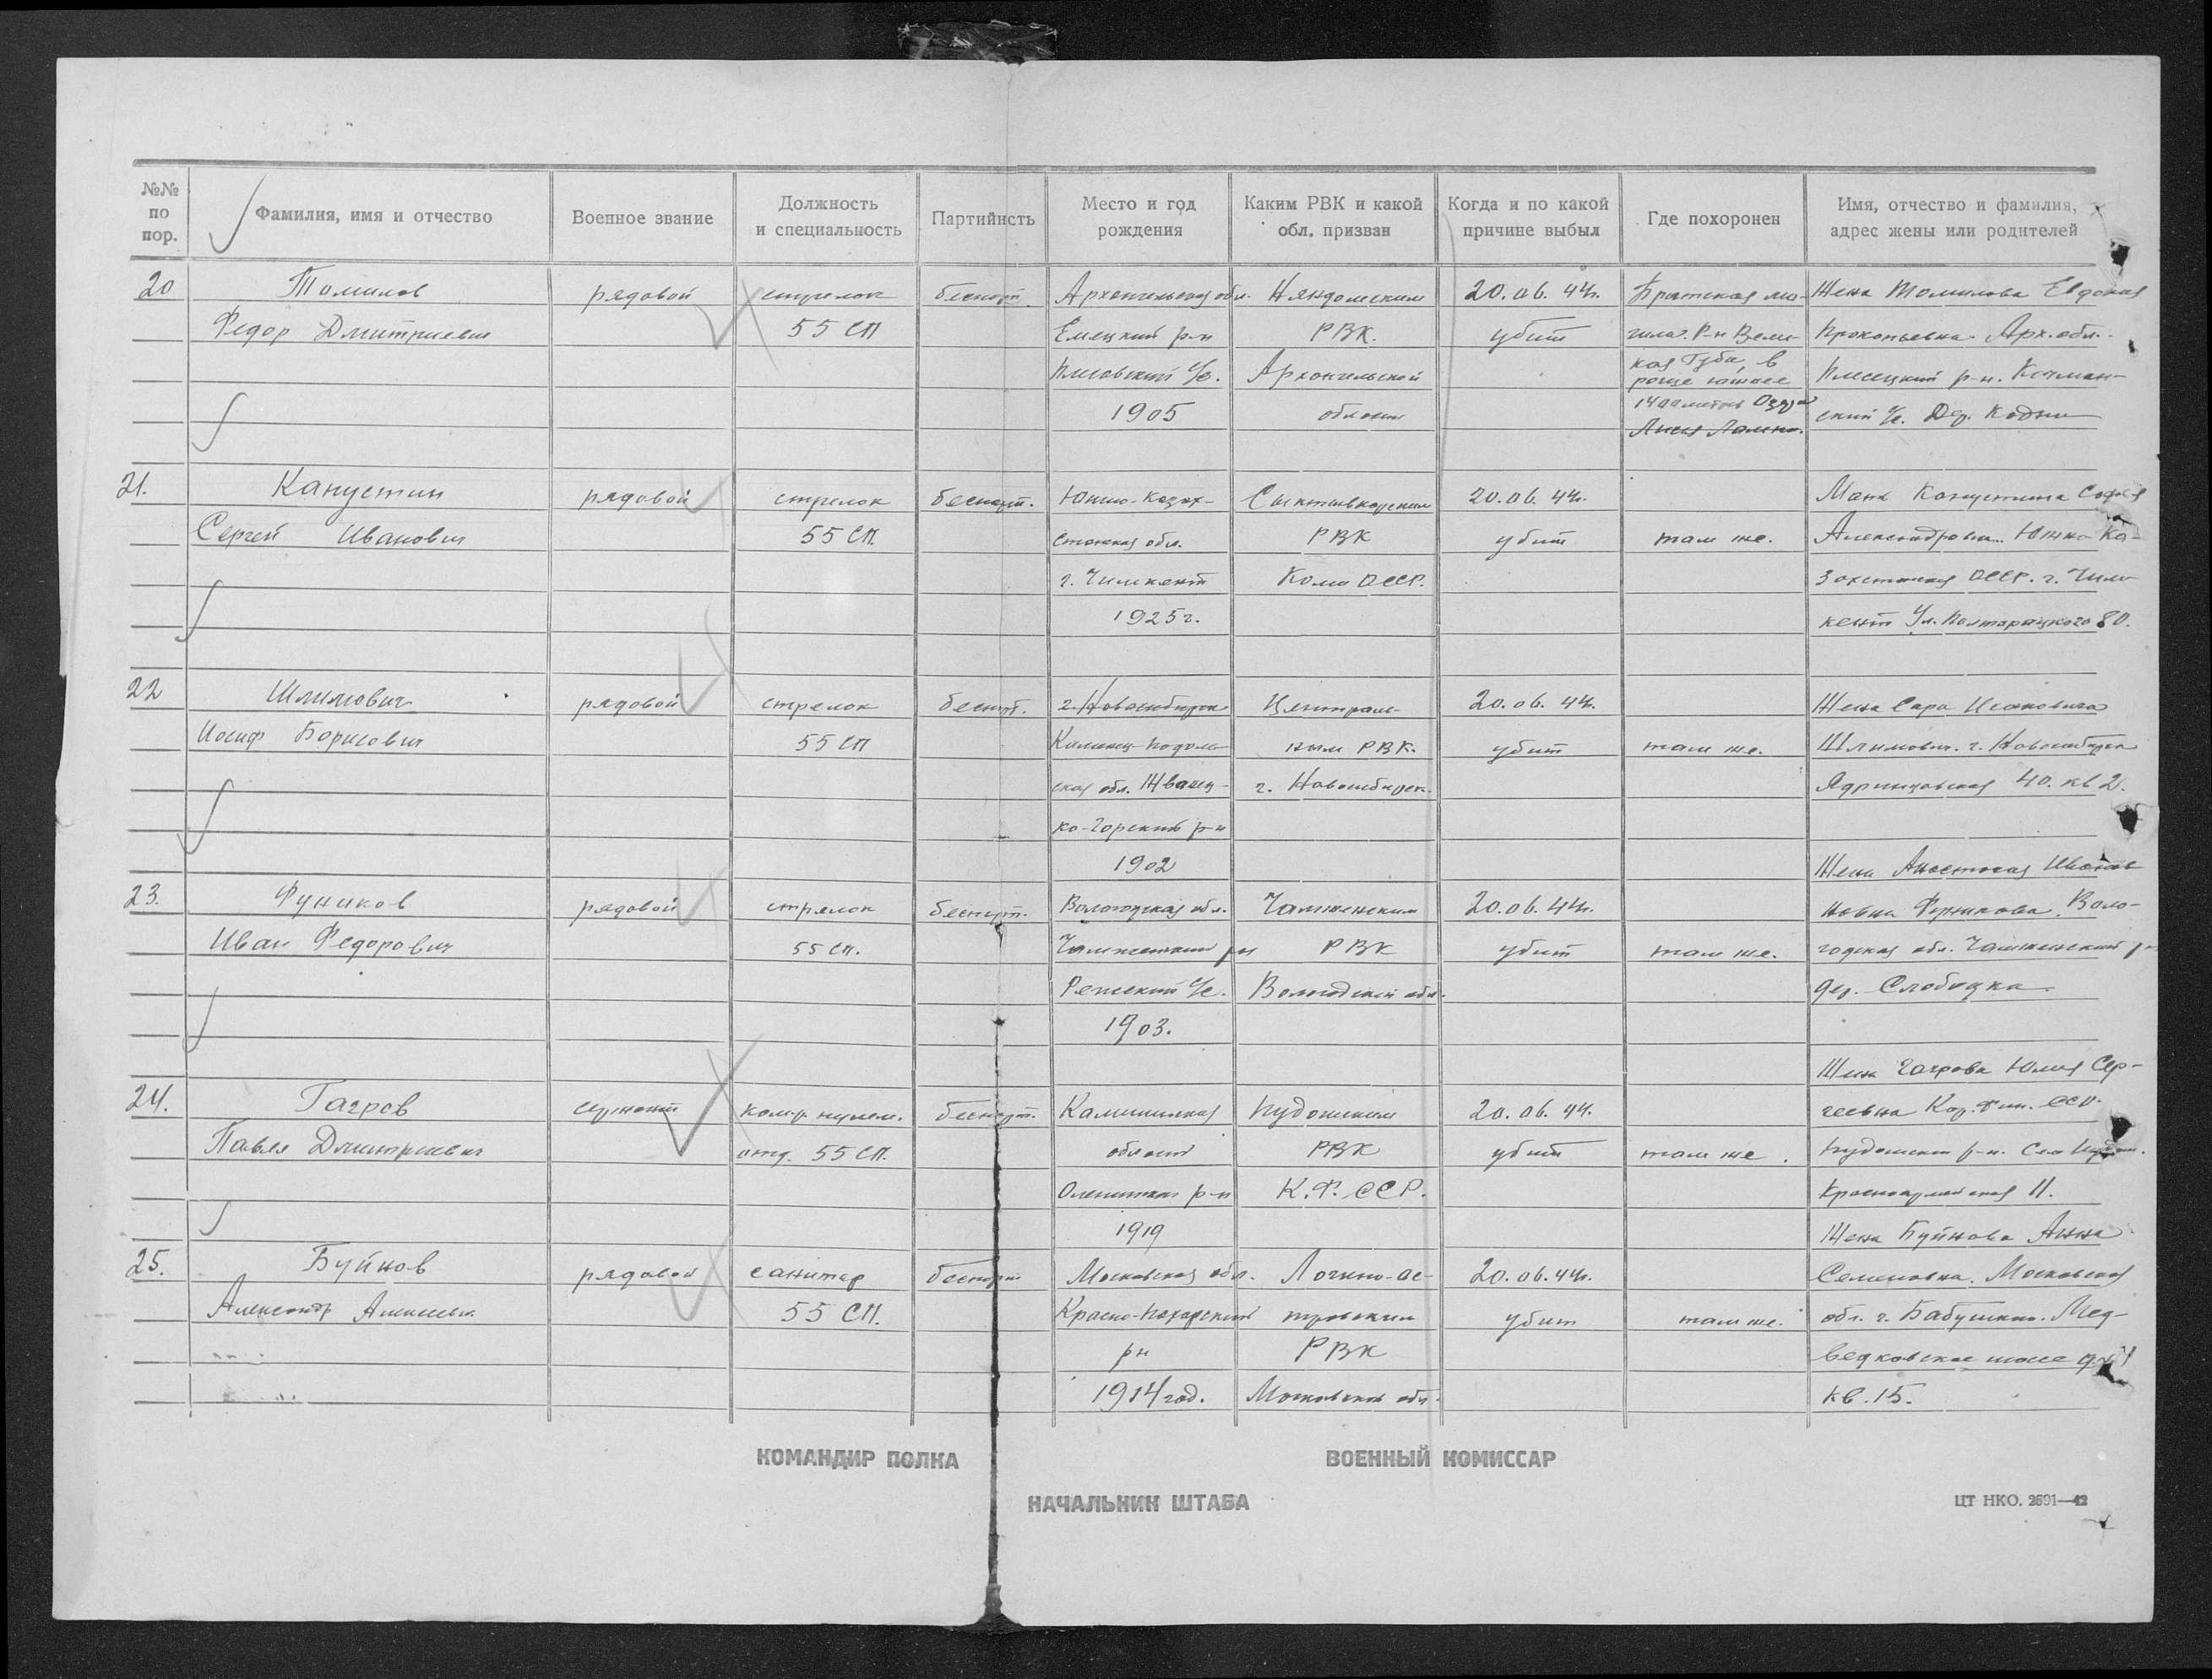 №№ по пор.
Фамилия, имя и отчество
Военное звание
Должность и специальность
Партийнсть
Место и год рождения
Каким РВК и какой обл. призван
Когда и по какой причине выбыл
Где похоронен
Имя, отчество и фамилия, адрес жены или родителей
20 Томилов рядовой стрелок беспарт. Архангельская обл. Няндомским 20.06.44г. Братская мо- Жена Томилова Евдокия
Федор Дмитриевич 55 СП Емецкий р-н РВК. убит гила. Р-н Вели- Прокопьевна. Арх. обл.
с/с. Архангельской кая Губа, в роще южнее Плесецкий р-н. Кочман-
1905 области 1400 метров ский с/с. Дер.
21. Капустин рядовой стрелок беспарт. Южно-Казах- Сыктывкарским 20.06.44г. Мать Капустина
Сергей Иванович 55 СП. станская обл. РВК убит там же. Александровна. Южно-Ка-
г. Чимкент Коми АССР. захстанская г. Чим-
1925г. кент Ул. Полторацкого 80.
22 Шлимович рядовой стрелок беспарт. г. Новосибирск Централь- 20.06.44г. Жена Сара Исаковна
Иосиф Борисович 55 СП Каменец-Подоль- ным РВК. убит там же. Шлимович. г. Новосибирск
ская обл. Жванец- г. Новосибирск. Ядринцовская 40. кв 2.
ко-Горский р-н
1902 Жена Иванов-
23. Фуников рядовой стрелок беспарт. Вологодская обл. 20.06.44г. новна Фуникова. Воло-
Иван Федорович 55 СП. рн РВК убит там же. годская обл.
с/с. Вологодской обл. дер. Слободка.
1903.
Жена Гагрова Юлия Сер-
24. Гагров сержант ком-р пулем. беспарт. Калининская Пудожским 20.06.44. геевна Кар. Фин. ССР.
Павел Дмитриевич отд. 55 СП. область РВК убит там же. Пудожский р-н.
р-н К.Ф. ССР. Красноармейская 11.
1919 Жена Буйнова Анна
25. Буйнов рядовой санитар беспарт Московская обл. 20.06.44г. Семеновна. Московская
Александр Алексеевич 55 СП. Красно-Пахарский РВК убит там же. обл. г. Бабушкин. Мед-
рн ведковское шосе
1914 год. Московской обл. кв. 15.
КОМАНДИР ПОЛКА
ВОЕННЫЙ КОМИССАР
НАЧАЛЬНИК ШТАБА
ЦТ НКО. 2691—42